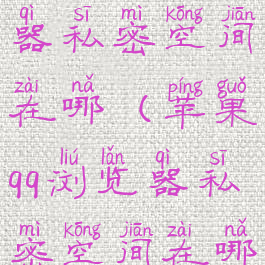 qì sī mì kōng jiān
器私密空间
zài nǎ píng guǒ
在哪(苹果
liú lǎn qì sī
qq浏览器私
mì kōng jiān zài nǎ
密空间在哪